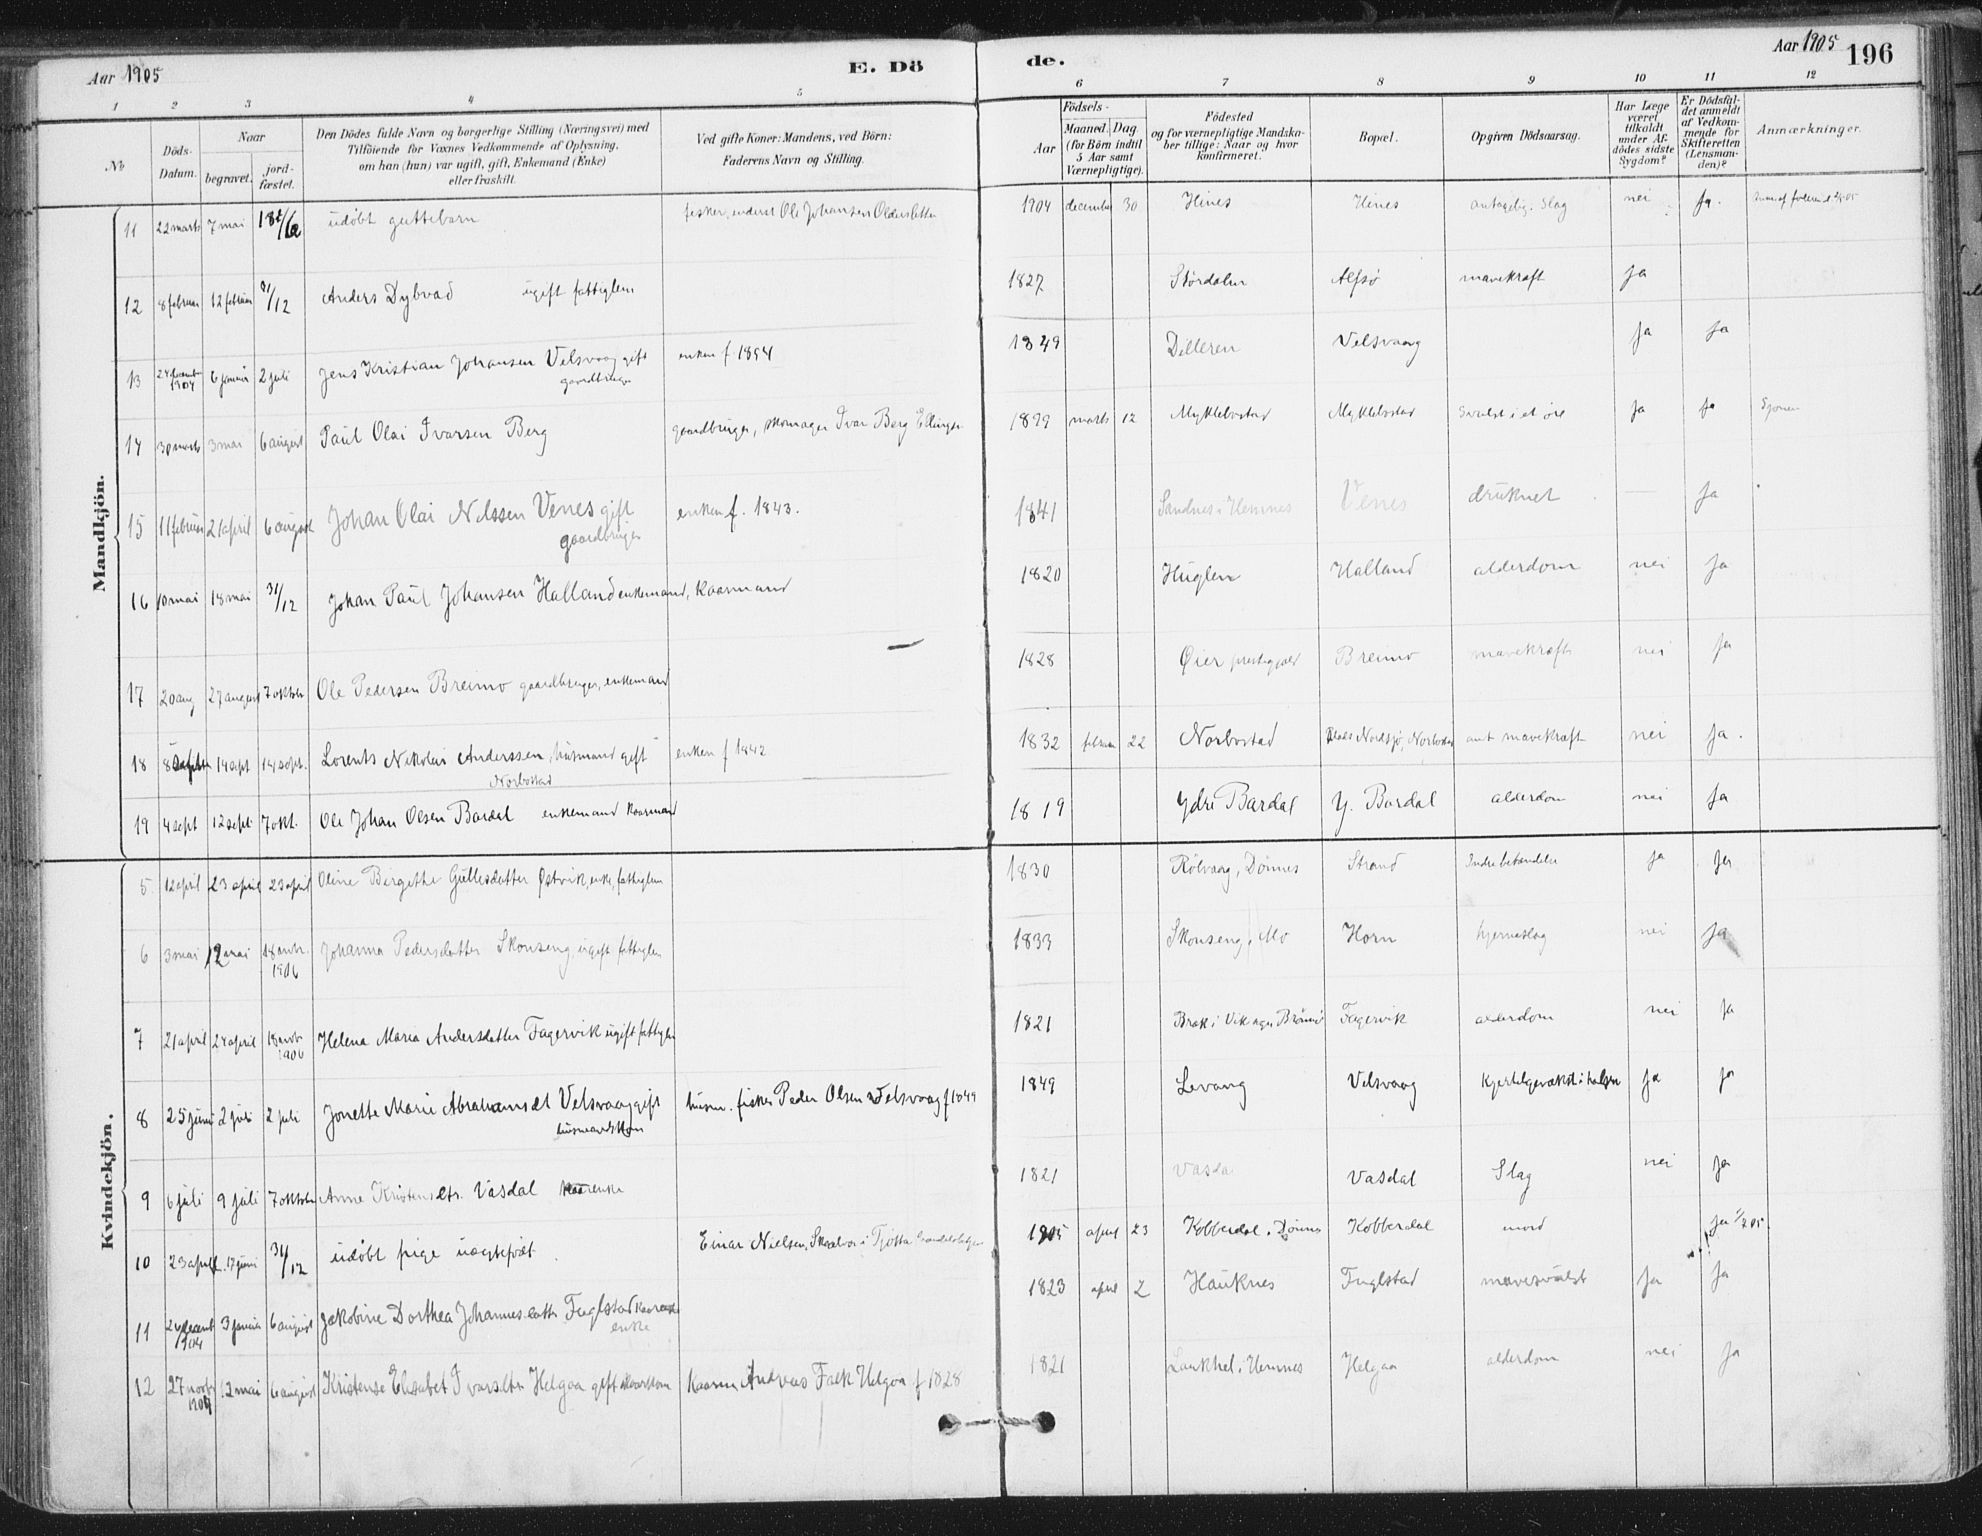 Aar 1905
E. Dö
de.
Aar 1905 196
1 2 3 4 5 6 7 8 9 10 11 12
No
Döds-Datum.
Naar
begravet.
jord-fæstet.
Den Dödes fulde Navn og borgerlige Stilling (Næringsvei) med
Tilföiende for Voxnes Vedkommende af Oplysning,
om han (hun) var ugift, gift, Enkemand (Enke)
eller fraskilt.
Ved gifte Koner: Mandens, ved Börn:
Faderens Navn og Stilling.
Födsels-
Aar
Maaned. Dag.
(for Börn indtil
5 Aar samt
Værnepligtige).
Födested
og for værnepligtige Mandska-
ber tillige: Naar og hvor
konfirmeret.
Bopæl.
Opgiven Dödsaarsag.
Har Læge
været
tilkaldt
under Af-
dödes sidste
Sygdom?
Er Dödsfal-
det anmeldt
af Vedkom-
mende for
Skifteretten
(Lensman-
den)?
Anmærkninger.
Mandkjön.
11 22 marts 7 mai udöbt guttebarn fisker, Ole Johansen 1904 december 30 Hines Hines antagelig. Slag nei ja.
12 8 februar 12 februar 31/12 Anders Dybvad ugift fattiglem 1827 Størdalen Alfsø mavekræft ja
13 1904 6 januar 2 juli Jens Kristian Johansen Velsvaag gift gaardbruger enken f. 1854 1849 Dilleren Velsvaag ja ja
14 30 marts 3 mai 6 august Paul Olai Ivarsen Berg gaardbruger, skomager Ivar Berg 1899 marts 12 Myklebostad Myklebostad Svulst i et øre ja ja
15 11 februar 21 april 6 august Johan Olai Nilssen Venes gift gaardbruger enken f. 1843. 1841 Sandnes i Hemnes Venes druknet — ja
16 10 mai 18 mai 31/12 Johan Paul Johansen Halland enkemand, kaarmand 1820 Huglen Halland alderdom nei ja
17 20 aug 27 august 7 oktober Ole Pedersen Breimo gaardbruger, enkemand 1828 Øier prestegjæld Breimo mavekræft nei ja
18 8 sept 14 sept 14 sept. Lorents Nikolai Anderssen, husmand gift Norbostad enken f 1842 1832 februar 22 Norbostad Nordsjø, Norbostad ant mavekræft nei ja.
19 4 sept 12 sept. 7 okt. Ole Johan Olsen Bardal enkemand kaarmand 1819 Ydre Bardal Y. Bardal alderdom nei ja
Kvindekjön.
5 12 april 23 april 23 april Oline Bergethe Gullesdatter Østvik, enke, fattiglem 1830 Rølvaag, Dønnes Strand Indre betændelse ja ja
6 3 mai 12 mai 18 1906 Johanna Pedersdatter Skonseng, ugift fattiglem 1833 Skonseng, Mo Horn hjerneslag nei ja
7 21 april 24 april 18 1906 Helena Maria Andersdatter Fagervik ugift fattiglem 1821 Fagervik alderdom nei ja
8 25 juni 2 juli 2 juli Jonette Marie Abrahamsdt Velsvaag gift husmandskone husm. fisker Peder Olsen Velsvaag f 1849 1849 Levang Velsvaag kjertelgevækst i halsen ja ja
9 6 juli 9 juli 7 oktober Anne Kristensdtr. Vasdal kaarenke 1821 Vasda Vasdal Slag nei ja
10 23 april 17 juni 31/12 udöbt pige uægtefødt. Einar Nielsen, i Tjøtta 1905 april 23 Kobberdal i Dønnes Kobberdal mord ja
11 1904 3 januar 6 august Jakobine Dorthea Johannesdatter Fuglstad enke 1823 april 2 Hauknes Fuglstad mavesvulst ja ja
12 27 1904 12 mai 6 august Kristense Elisabet Ivarsdtr Helgaa gift kaarkone kaarm Andreas Falk Helgaa f 1828 1821 i Hemnes Helgaa alderdom nei ja